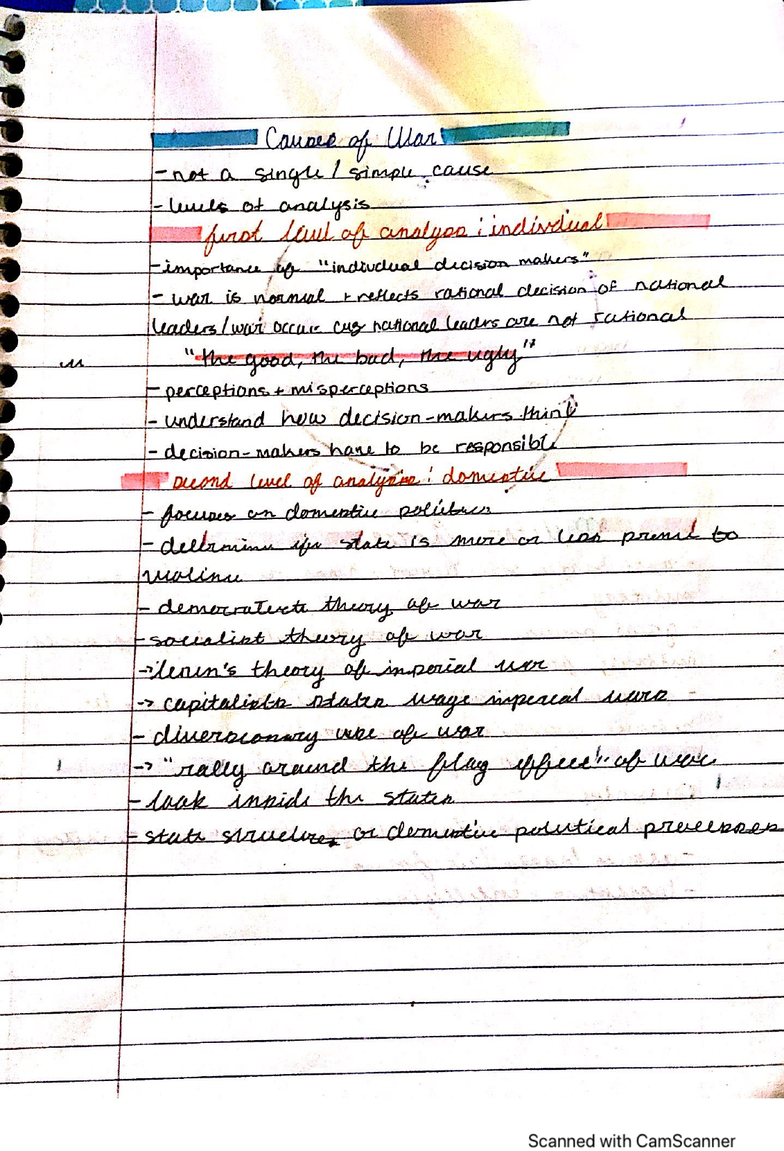 Causes of War
- not a single / simple cause
- levels of analysis
first level of analysis : individual
- importance of "individual decision makers"
- war is normal + reflects rational decision of national
leaders/war occurs cuz national leadrs are not rational
"the good, the bad, the ugly"
- perceptions + misperceptions
- understand how decision-makers think
- decision-makers have to be responsible
second level of analysis : domestic
- focuses on domestic politics
- determine if state is more or less prone to
- theory of war
- socialist theory of war
-> lenin's theory of imperial war
-> capitalists states wage imperial wars
- diversionary use of war
-> "rally around the flag effect" of war
- look inside the states
- state structures or domestic political processes
Scanned with CamScanner